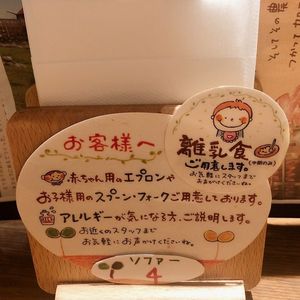 お客様へ
赤ちゃん用のエプロンや
お子様用のスプーン・フォークご用意しております。
アレルギーが気になる方、ご説明します。
お近くのスタッフまで
お気軽にお声がけくださいね。
ソファー
4
離乳食
ご用意します。
(中期のみ)
お気軽にスタッフまで
お声がけくださいね。
そしてその